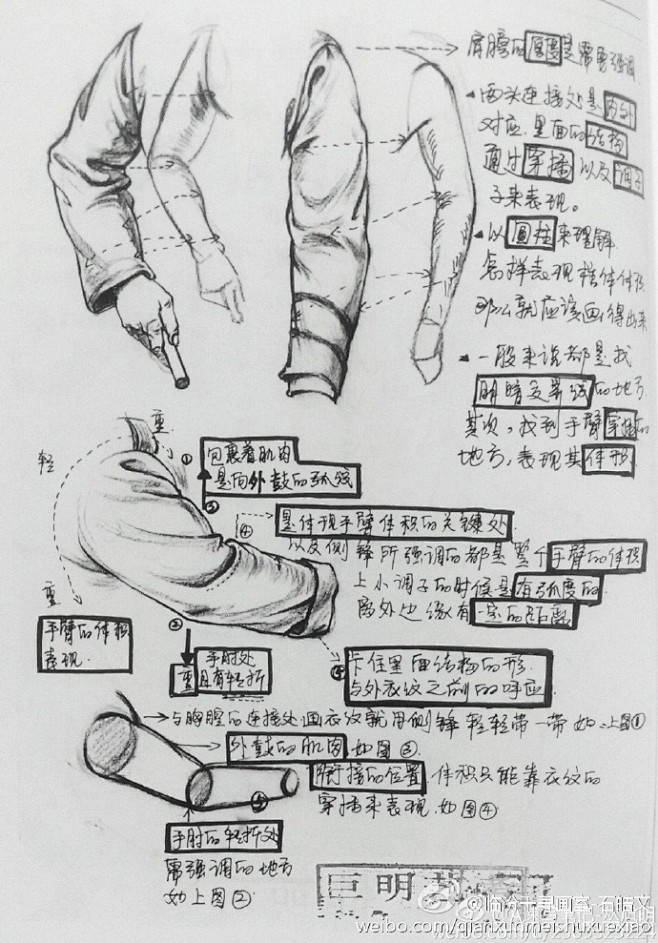 肩膀的厚度是需要强调
两头连接处是内外
对应.里面的结构
通过穿插以及调子
子来表现。
以圆柱来理解
怎样表现柱体体积
那么就应该画得出来
一般来说都是找
明暗交界线的地方
其次,找到手臂穿插的
地方,表现其体形
重
轻
①
包裹着肌肉
是向外鼓的弧线
③
④
是体现手臂体积的关键处
以及侧锋所强调的都是整个手臂的体积
上小调子的时候是有弧度的
离外边缘有一定的距离
重
手臂的体积
表现.
②
重
手肘处
且有转折
⑤
卡住里面结构的形.
与外衣纹之间的呼应
与胸膛的连接处画衣纹就用侧锋轻轻带一带如:上图①
外鼓的肌肉.如图③.
衔接的位置.体积只能靠衣纹的
穿插来表现.如图④
手肘的转折处
需强调的地方
如上图②
巨明
weibo.com/qianxunmeishuxuexiao